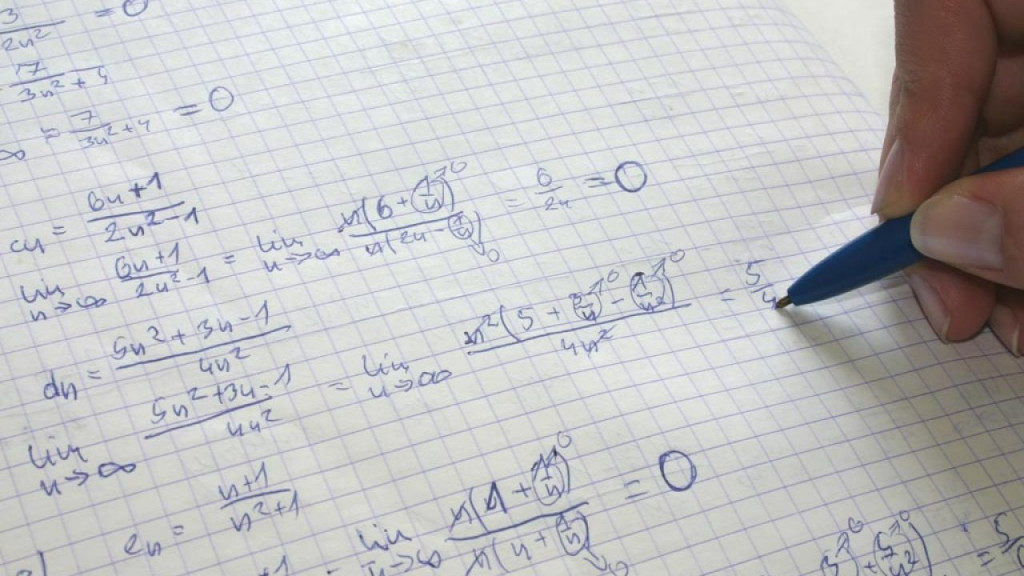 3/2n² = 0
7/(3n² + 4)
∞ = 7/(3n² + 4) = 0
cn = (6n + 1)/(2n² - 1)
lim n→∞ (6n + 1)/(2n² - 1) = lim n→∞ n(6 + (1/n)→0)/n(2n - (1/n)→0) = 6/2n = 0
dn = (5n² + 3n - 1)/4n²
lim n→∞ (5n² + 3n - 1)/4n² = lim n→∞ n²(5 + (3/n)→0 - (1/n²)→0)/4n² = 5/4
en = (n + 1)/(n² + 1)
+1 = lim n→∞ n(1 + (1/n)→0)/n(n + (1/n)→0) = 0